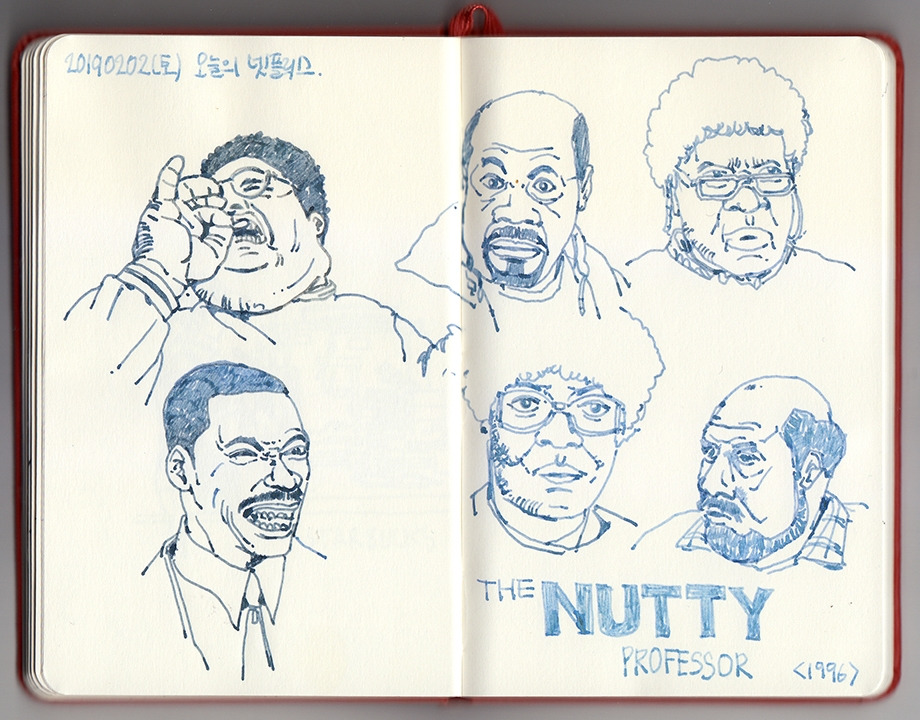 20190202(토) 오늘의 넷플릭스.
THE NUTTY
PROFESSOR <1996>